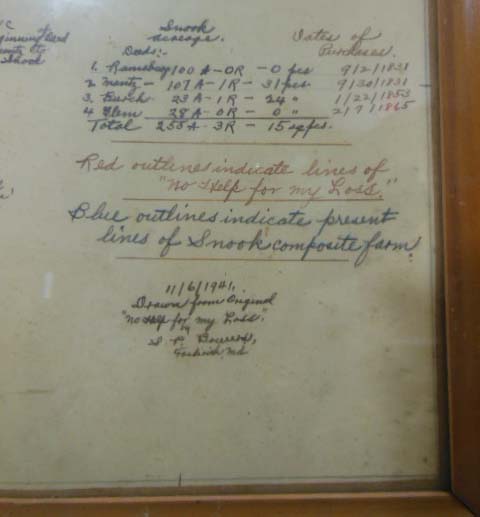 Snook
acreage.
Dates of
Purchases.
Deeds:-
1. Ramsburg 100 A - 0R - 0 ps 9/2/1831
2. Mantz - 107 A - 1R - 31 ps. 9/30/1831
3. - 23 A - 1R - 24 " 1/22/1853
4 - 28 A - 0R - 0 " 2/7/1865
Total 258 A - 3R - 15 sq ps.
Red outlines indicate lines of
"No Help for my Loss."
Blue outlines indicate present
lines of Snook composite farm.
11/6/1941.
Drawn from Original
"No Help for my Loss."
by
S. P.
Md